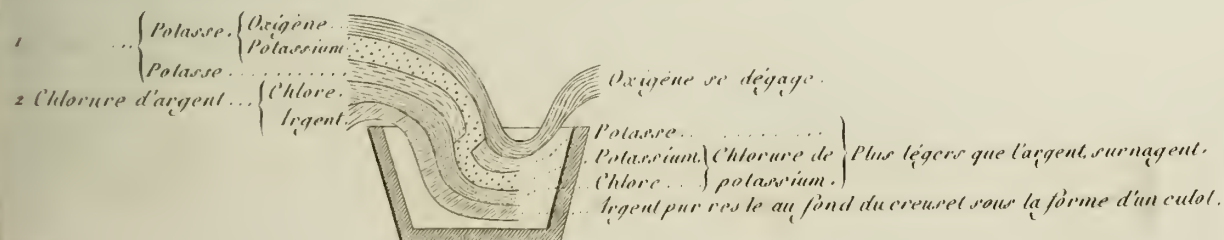 1 ... { Potasse. { Oxigène ..
Potassium
Potasse ............
2 Chlorure d'argent ... { Chlore.
Argent
Oxigène se dégage.
Potasse .. ........
Potassium. } Chlorure de } Plus légers que l'argent, surnagent.
Chlore ... } potassium.
Argent pur reste au fond du creuset sous la forme d'un culot.